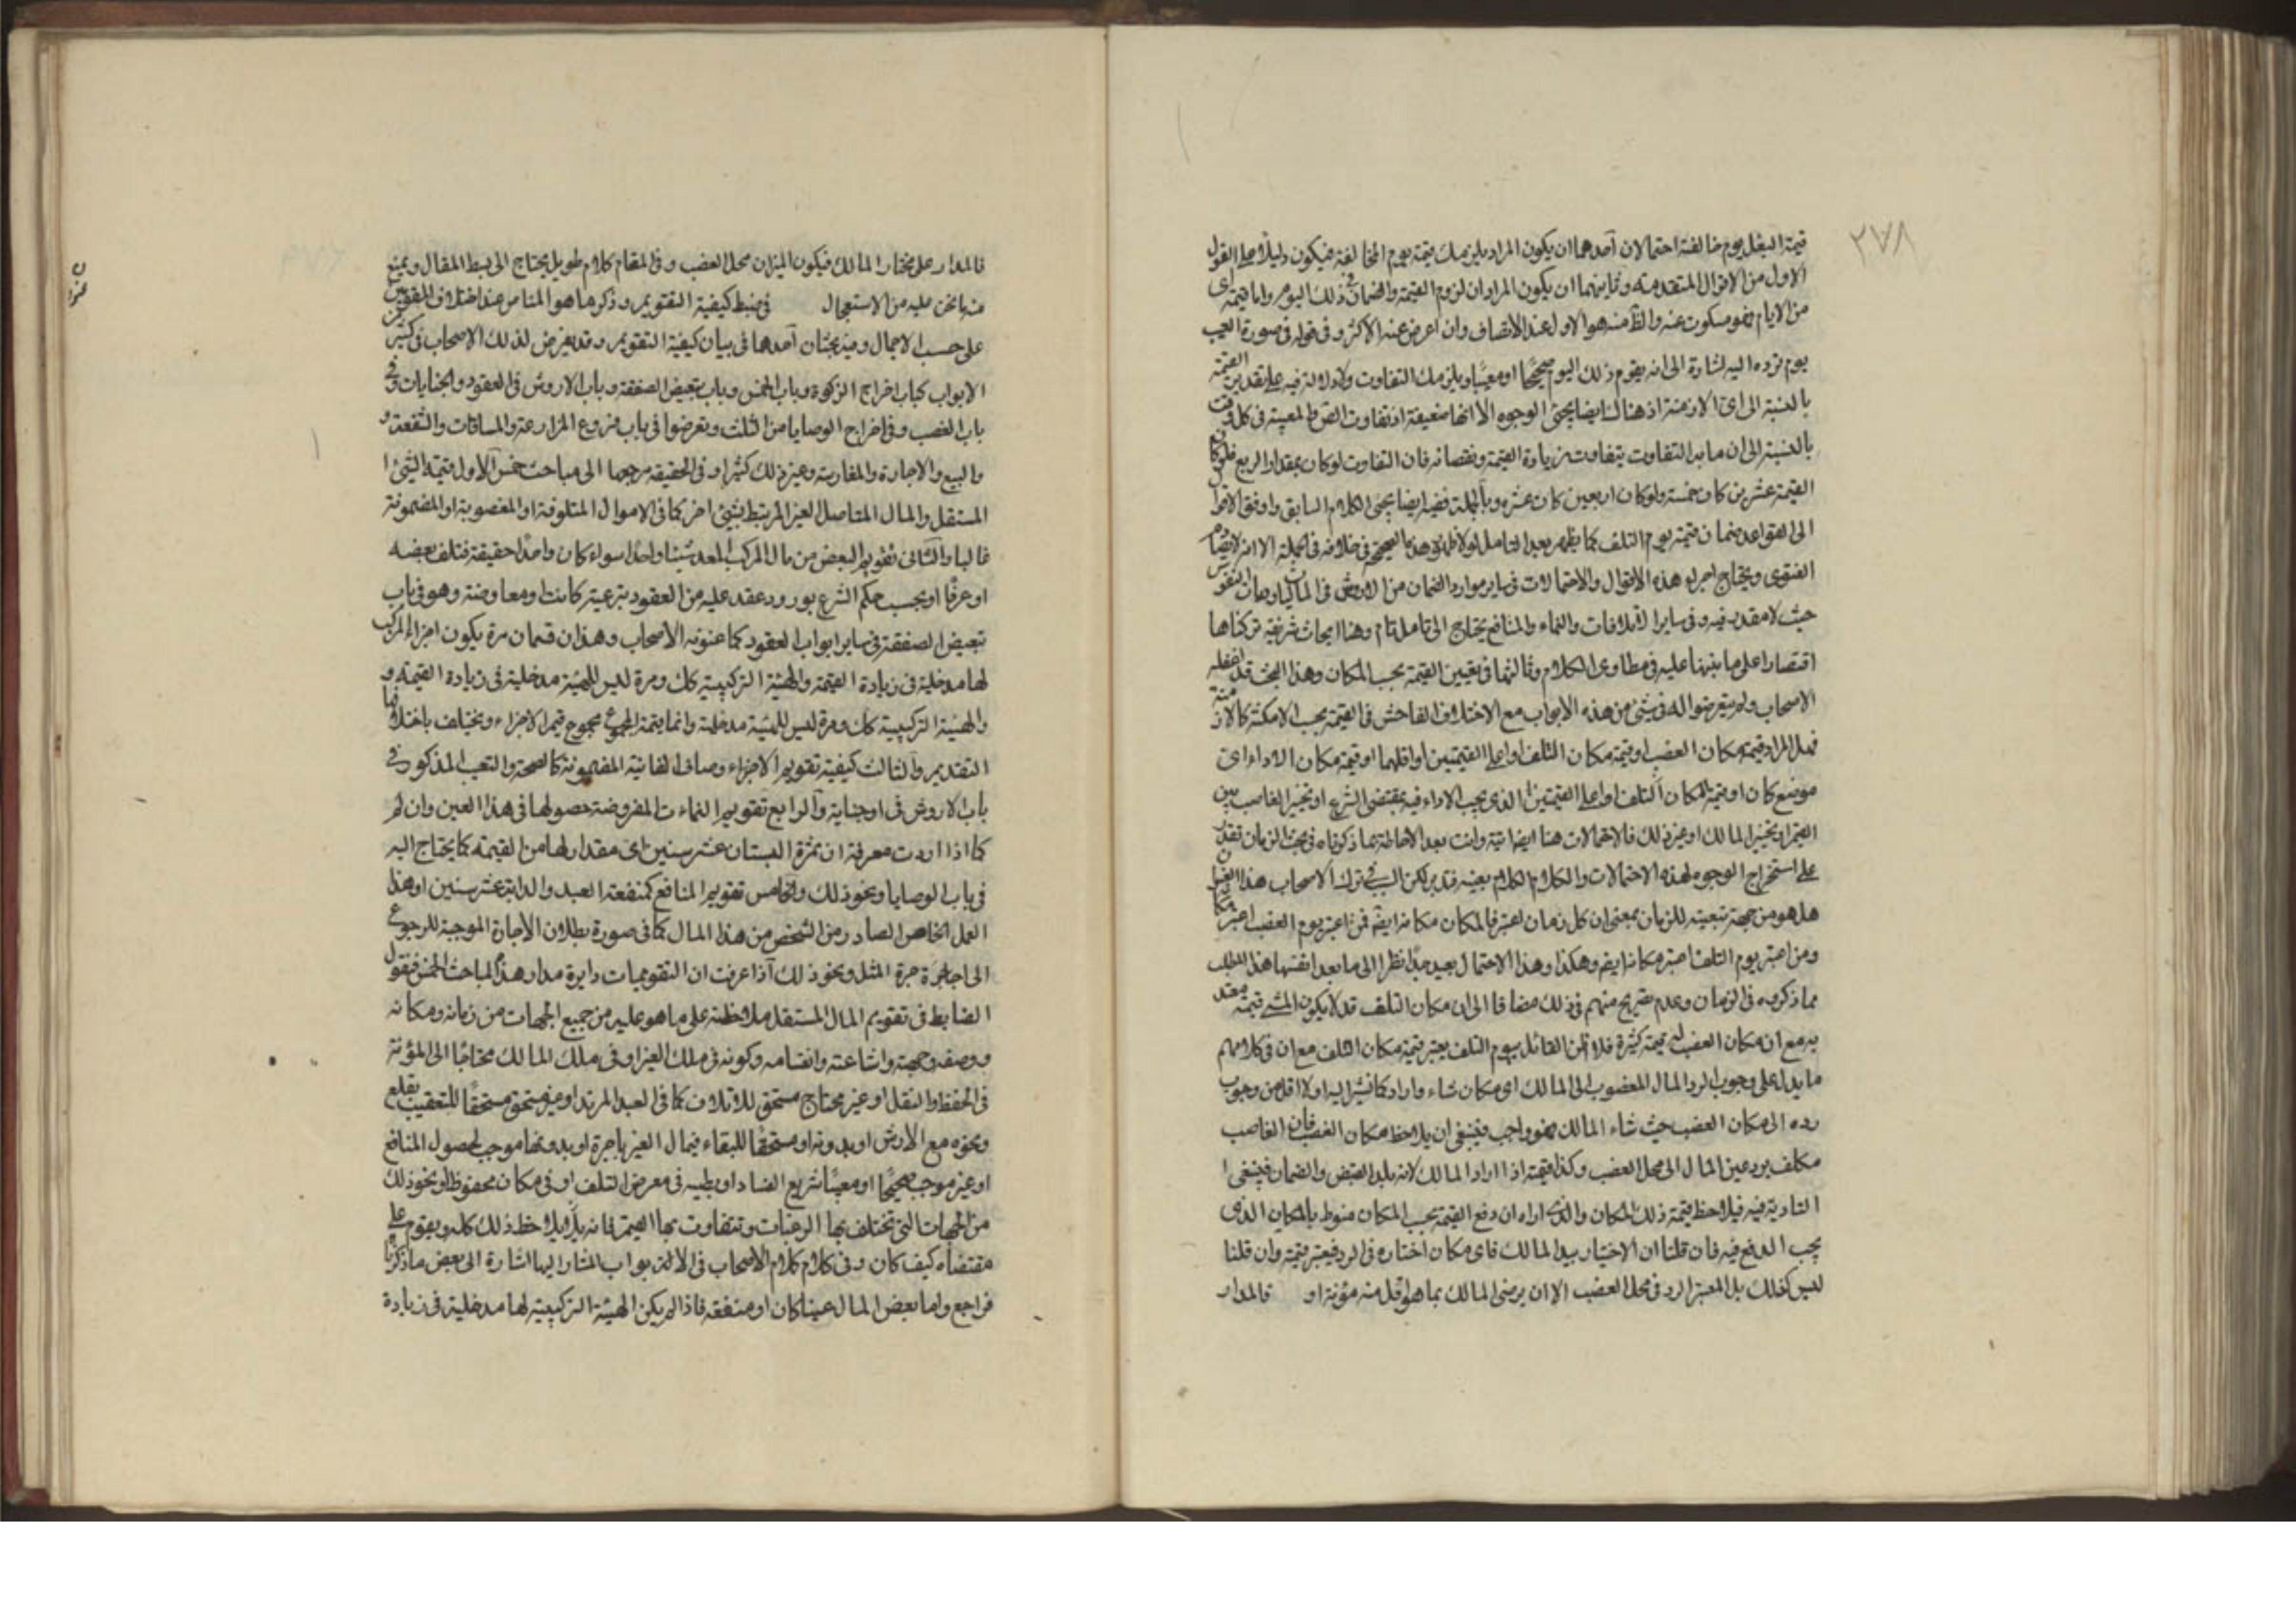 ٢٧٨
قيمة البغل يوم خالفته احتمالان آحدهما ان يكون المراد يلزمك قيمة يوم المخالفة فيكون دليلا على القول
الاول من الاقوال المتقدمة وثانيهما ان يكون المراد ان لزوم القيمة والضمان في ذلك اليوم واما قيمة اى
من الايام فهو مسكوت عنه والظ منه هو الاول عند الانصاف وان اعرض عنه الاكثر وفى قوله فى صورة العيب
يوم ترده اليه اشارة الى انه يقوم ذلك اليوم صحيحا او معيبا ويلزمك التفاوت ولا دلالة فيه على تقدير القيمة
بالنسبة الى اى الازمنة اذ هناك ايضا يجئ الوجوه الا انها ضعيفة اذ تفاوت المعيبة فى كل وقت
بالنسبة الى ان مابه التفاوت يتفاوت بزيادة القيمة ونقصانه فان التفاوت لو كان بمقدار الربع فلو كان
القيمة عشرين كان خمسة ولو كان اربعين كان عشرة وبالجملة ففيه ايضا يجئ الكلام السابق واوفق الاقوال
الى القواعد ضمان قيمة يوم التلف كما يظهر بعد التامل لولا ظهور هذه الصحيحة فى خلافه فى الجملة الا انه
الفتوى ويحتاج اجراء هذه الاقوال والاحتمالات فى ساير موارد الضمان من الاروش فى الماليات
حيث لا مقدر فيه وفى ساير الاتلافات والنماء والمنافع يحتاج الى تامل تام وهنا ابحاث شريفة تركناها
اقتصارا على ما نبهنا عليه فى مطاوى الكلام وثالثها فى تعيين القيمة بحسب المكان وهذا البحث قد اغفله
الاصحاب ولم يتعرضوا له فى شئ من هذه الابواب مع الاختلاف الفاحش فى القيمة بحسب الامكنة كالازمنة
فهل المراد قيمة مكان الغصب او قيمة مكان التلف او اعلى القيمتين او اقلهما او قيمة مكان الاداء اى
موضع كان او قيمة المكان التلف او اعلى القيمتين الذى يجب الاداء فيه بمقتضى الشرع او تخيير الغاصب بين
القيم او تخيير المالك او غير ذلك فالاحتمالات هنا ايضا اتية وانت بعد الاحاطة بما ذكرناه فى بحث الزمان تقدر
على استخراج الوجوه لهذه الاحتمالات والكلام الكلام بعينه فتدبر لكن البحث فى ترك الاصحاب هذا العنوان
هل هو من جهة تبعيته للزمان بمعنى ان كل زمان اعتبر فالمكان مكانه ايضا فمن اعتبر يوم الغصب اعتبر مكانه
ومن اعتبر يوم التلف اعتبر مكانه ايضم وهكذا وهذا الاحتمال بعيد جدا نظرا الى ما بعد اقتضاء هذا المطلب
مما ذكروه فى الزمان وعدم تصريح منهم فى ذلك مضافا الى ان مكان التلف قد لا يكون للشئ قيمة معتد
به مع ان مكان الغصب له قيمة كثيرة فلا اظن القائل بيوم التلف يعتبر قيمة مكان التلف مع ان فى كلامهم
ما يدل على وجوب الرد المال المغصوب الى المالك اى مكان شاء واراد كما نشير اليه اولا اقل من وجوب
رده الى مكان الغصب حيث شاء المالك فهو واجب فينبغى ان يلاحظ مكان الغصب فان الغاصب
مكلف برد عين المال الى محل الغصب وكذا قيمته اذا اراد المالك لانه بدل القبض والضمان فينبغى
التادية فيه فيلاحظ قيمة ذلك المكان والذى اراه ان دفع القيمة بحسب المكان منوط بالمكان الذى
يجب الدفع فيه فان قلنا ان الاختيار بيد المالك فاى مكان اختاره فى الرد فيعتبر قيمته وان قلنا
ليس كذلك بل المعتبر الرد فى محل الغصب الا ان يرضى المالك بما هو اقل منه مؤنة او
فالمدار
فالمدار على مختار المالك فيكون الميزان محل الغصب وفى المقام كلام طويل يحتاج الى بسط المقال ويمنع
منه ما نحن عليه من الاستعجال فى ضبط كيفية التقويم وذكر ما هو المناص عند اختلاف المقومين
على حسب الاجمال وفيه بحثان آحدها فى بيان كيفية التقويم وقد يعرض لذلك الاصحاب فى كثير من
الابواب كباب اخراج الزكوة وباب الخمس وباب تبعيض الصفقة وباب الاروش فى العقود والجنايات وفى
باب الغصب وفى اخراج الوصايا من الثلث وتعرضوا فى باب فروع المزارعة والمساقات والشفعة و
والبيع والاجارة والمغارسة وغير ذلك كثيرا وفى الحقيقة مرجعها الى مباحث خمس الاول قيمة الشئ
المستقل والمال المتاصل الغير المرتبط بشئ اخر كما فى الاموال المتلوفة او المغصوبة او المضمونة
غالبا والثانى تقويم البعض من مال المركب المعد شيئا واحدا سواء كان واحدا حقيقة فتلف بعضه
او عرفا او بحسب حكم الشرع بورود عقد عليه من العقود تبرعية كانت او معاوضة وهو فى باب
تبعيض الصفقة فى ساير ابواب العقود كما عنونه الاصحاب وهذان قسمان مرة يكون اجزاء المركب
لها مدخلية فى زيادة القيمة والهيئة التركيبية كك ومرة ليس للهيئة مدخلية فى زيادة القيمة و
والهيئة التركيبية كك ومرة ليس للهيئة مدخلية وانما قيمة المجموع مجموع قيم الاجزاء ويختلف باختلافها
التقديم والثالث كيفية تقويم الاجزاء وصاف الفائتة المضمونة كالصحة والتعب المذكور فى
باب الاروش فى او جناية والرابع تقويم النماءت المفروضة حصولها فى هذا العين وان لم
كما اذا اردت معرفة ان ثمرة البستان عشر سنين اى مقدار لها من القيمة كما يحتاج اليه
فى باب الوصايا ونحو ذلك والخامس تقويم المنافع كمنفعة العبد والدابة عشر سنين او هذا
العمل الخاص الصادر من الشخص من هذا المال كما فى صورة بطلان الأجارة الموجبة للرجوع
الى اجرة المثل ونحو ذلك آذا عرفت ان التقويمات دايرة مدار هذه المباحث الخمس فنقول
الضابط فى تقويم المال المستقل ملاحظته على ما هو عليه من جميع الجهات من زمانه ومكانه
ووصفه وجهته واشاعته وانقسامه وكونه فى ملك الغير او فى ملك المالك محتاجا الى المؤنة
فى الحفظ والنقل او غير محتاج مستحق للاتلاف كما فى العبد المرتد او غير مستحق مستحقا للتعقيب بقلع
ونحوه مع الارش او بدونه او مستحقا للبقاء فى مال الغير باجرة او بدونها موجب لحصول المنافع
او غير موجب صحيحا او معيبا سريع الفساد او بطيئه فى معرض التلف او فى مكان محفوظ او نحو ذلك
من الجهات التى تختلف بها الرغبات وتتفاوت بها القيمة فانه يلاحظ ذلك كله ويقوم على
مقتضاه كيف كان وفى كلام كلام الاصحاب فى الابواب المشار اليها اشارة الى بعض ما ذكرنا
فراجع واما بعض المال عينا كان او منفعة فاذا لم يكن الهيئة التركيبية لها مدخلية فى زيادة